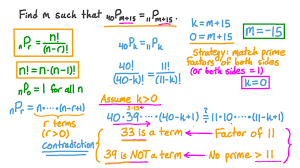 Find m such that ₄₀P_{m+15} = ₁₁P_{m+15}.
ₙPᵣ = n!/(n-r)!
n! = n·(n-1)!
ₙP₀ = 1 for all n
ₙPᵣ = n·····(n-r+1)
r terms
(r > 0)
contradiction
₄₀Pₖ = ₁₁Pₖ
40!/(40-k)! = 11!/(11-k)!
Assume k>0
40·39·····(40-k+1) ≟ 11·10·····(11-k+1)
33 is a term ← Factor of 11
39 is NOT a term ← No prime > 11
k = m+15
0 = m+15
m = -15
strategy: match prime
factors of both sides
(or both sides = 1)
k=0